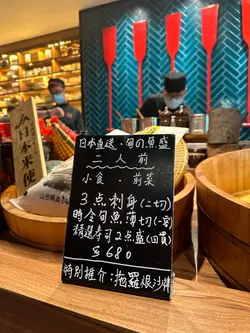 日本直送・旬の魚盛
二人前
小食・前菜
3点刺身(二切)
時令旬魚薄切(一客)
精選寿司2点盛(四貫)
$680
特別推介:拖羅
日本米使